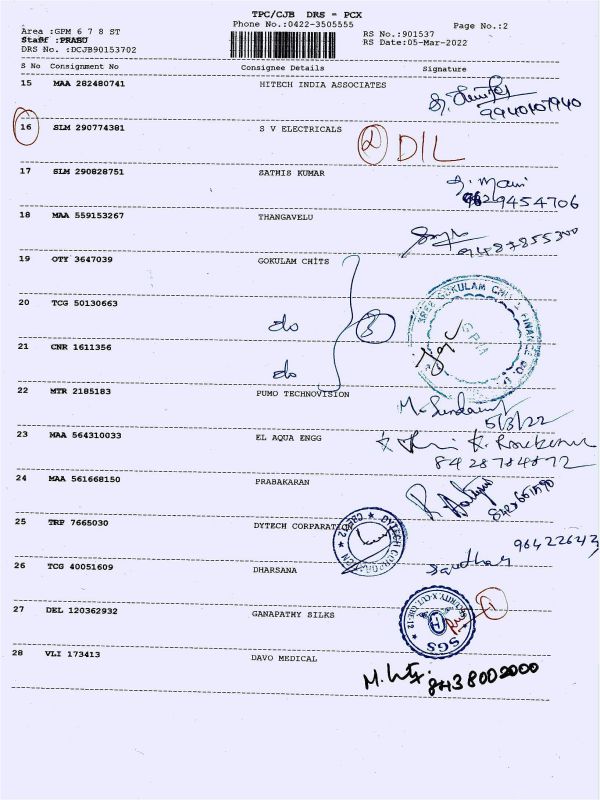 TPC/CJB DRS - PCX
Phone No.:0422-3505555
Page No.:2
Area :GPM 6 7 8 ST
Staff :PRABU
DRS No. :DCJB90153702
RS No.:901537
RS Date:05-Mar-2022
S No Consignment No Consignee Details Signature
15 MAA 282480741 HITECH INDIA ASSOCIATES
9940107940
16 SLM 290774381 S V ELECTRICALS 2 D/L
17 SLM 290828751 SATHIS KUMAR
S. Mani
9629454706
18 MAA 559153267 THANGAVELU
9487855300
19 OTY 3647039 GOKULAM CHITS
20 TCG 50130663
do 3
SREE GOKULAM CHIT & FINANCE CO.
GPM
21 CNR 1611356
do
22 MTR 2185183 PUMO TECHNOVISION
5/3/22
23 MAA 564310033 EL AQUA ENGG
8428784872
24 MAA 561668150 PRABAKARAN
25 TRP 7665030 DYTECH CORPARATION
DYTECH CORPORATION
26 TCG 40051609 DHARSANA
27 DEL 120362932 GANAPATHY SILKS
SGS
1
28 VLI 173413 DAVO MEDICAL
8438002000